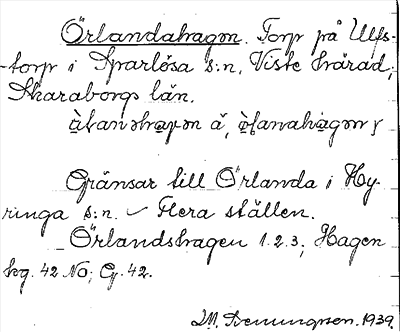 Örlandahagen. Torp på Ulfs-
torp i Sparlösa s:n, Viste härad,
Skaraborgs län.
Gränsar till Örlanda i Hy-
ringa s:n. Flera ställen.
Örlandshagen 1.2.3; Hagen
hg. 42 No; G. 42.
1939.